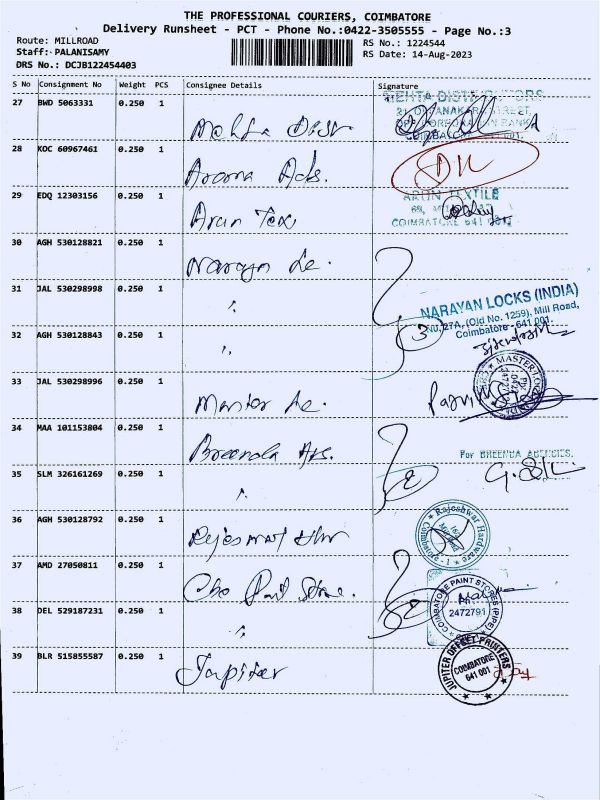 THE PROFESSIONAL COURIERS, COIMBATORE
Delivery Runsheet - PCT - Phone No.:0422-3505555 - Page No.:3
Route: MILLROAD
Staff: PALANISAMY
DRS No.: DCJB122454403
RS No.: 1224544
RS Date: 14-Aug-2023
S No Consignment No Weight PCS Consignee Details Signature
27 BWD 5063331 0.250 1 Mehta Distr.
MEHTA DISTRIBUTORS
28 KOC 60967461 0.250 1 Aroma Ads.
29 EDQ 12303156 0.250 1 Arun Tex
ARUN TEXTILE
COIMBATORE 641 001.
30 AGH 530128821 0.250 1 Narayn Lo.
31 JAL 530298998 0.250 1 "
NARAYAN LOCKS (INDIA)
No. 27A, (Old No. 1259), Mill Road,
Coimbatore - 641 001.
32 AGH 530128843 0.250 1 "
3
33 JAL 530298996 0.250 1 Master Lo.
34 MAA 101153804 0.250 1 Breenda Ags.
For BREENDA AGENCIES.
35 SLM 326161269 0.250 1 "
2
36 AGH 530128792 0.250 1 Rajeswar Hdw
Rajeshwar Hardware
Coimbatore - 1
37 AMD 27050811 0.250 1 Cbe Paint Store.
COIMBATORE PAINT STORES (PIPE)
2472791
38 DEL 529187231 0.250 1 "
2
39 BLR 515855587 0.250 1 Jupiter
JUPITER OFFSET PRINTERS
COIMBATORE
641 001